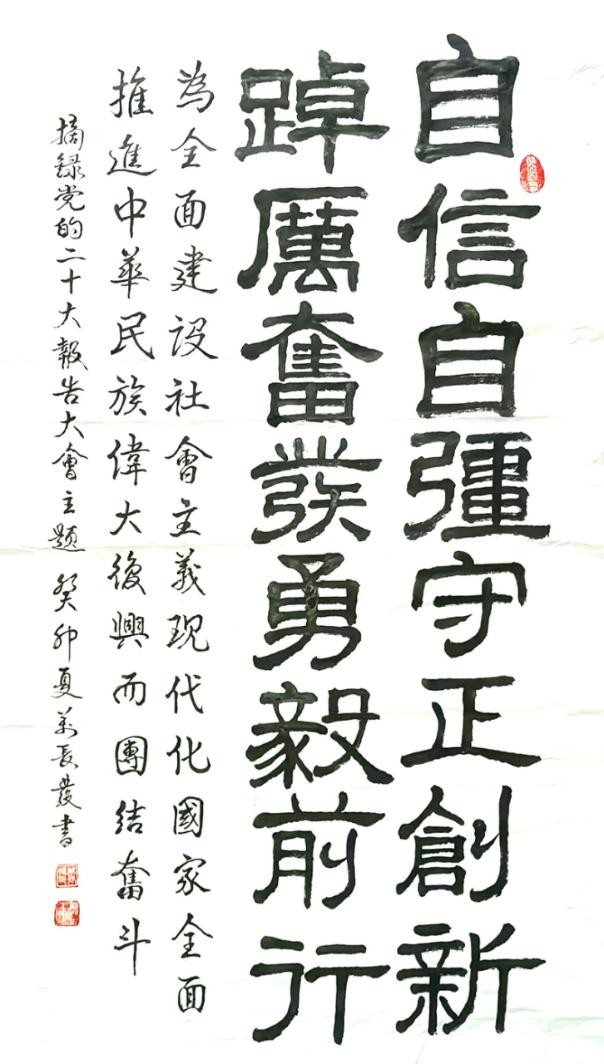 自信自彊守正創新
踔厲奮發勇毅前行
為全面建設社會主義現代化國家全面
推進中華民族偉大復興而團結奮斗
摘録党的二十大報告大會主題 癸卯夏 萬長發書